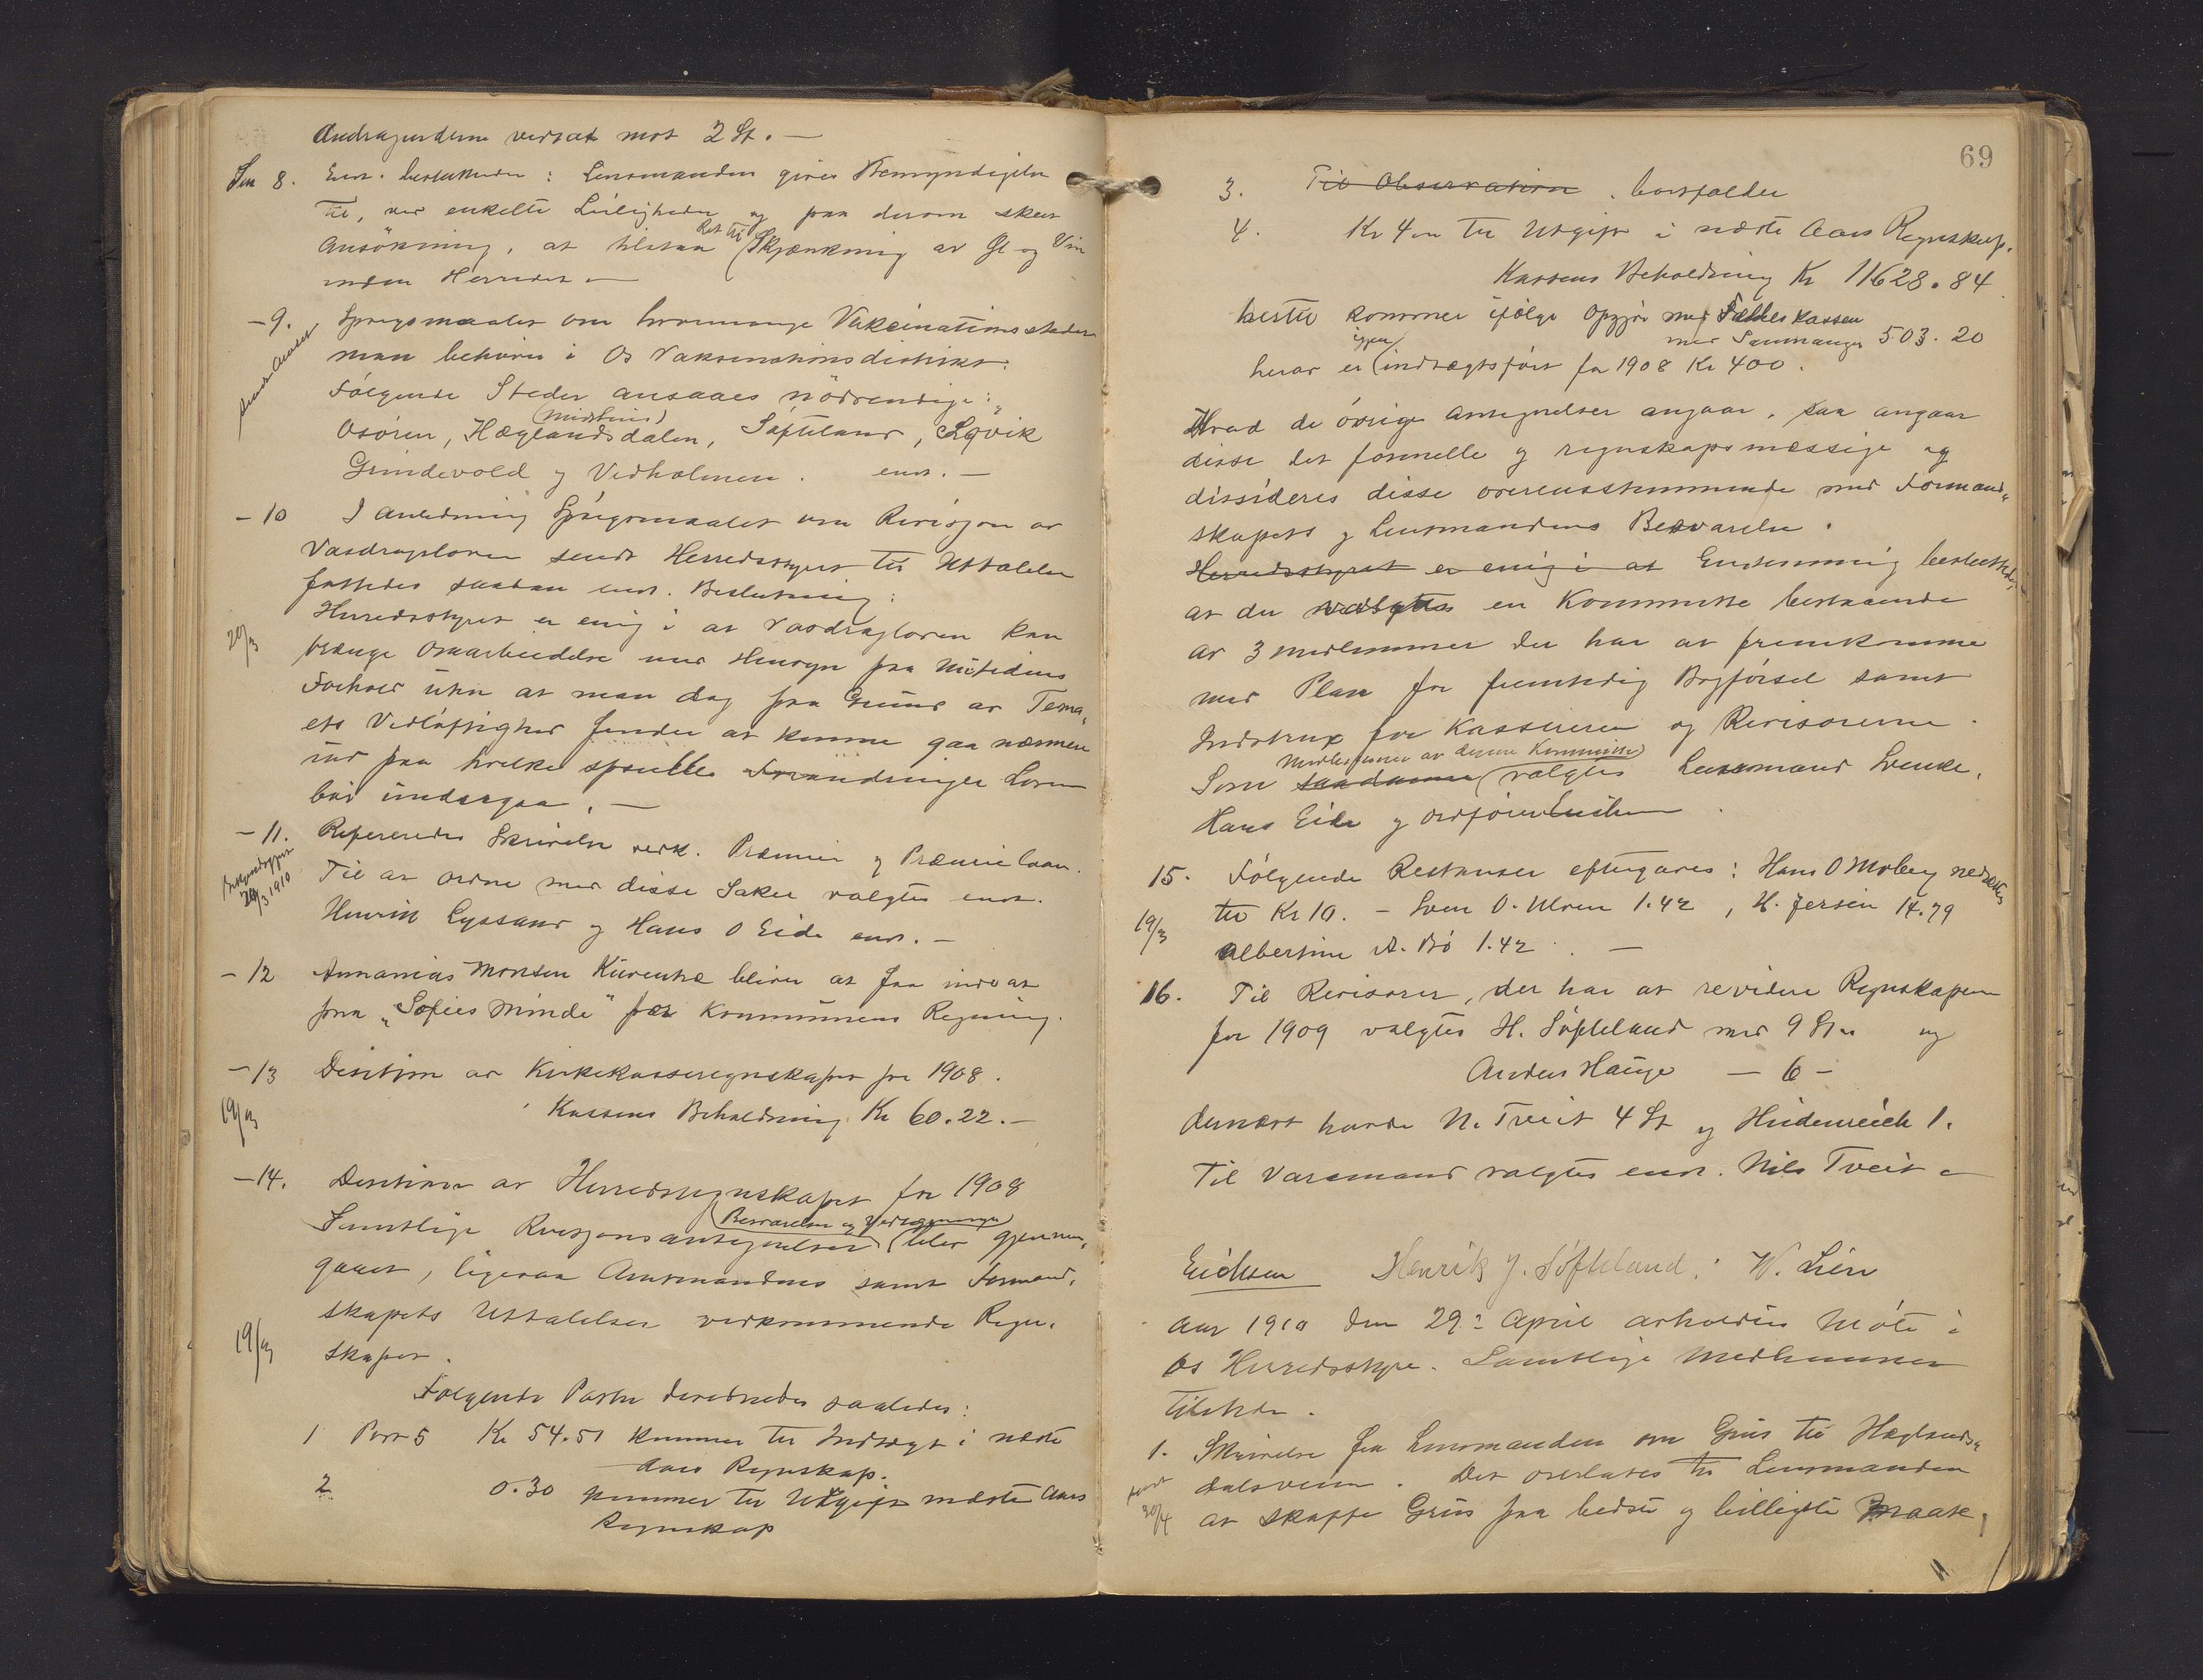 Andragenderne vedtat mot 2 St. —
Sak 8. Enst. besluttedes: Lensmanden gives Bemyndigelse
til, ved enkelte Leiligheder og paa derom skeet
Ansökning, at tilstaa Ret til Skjænkning av Öl og Vin
inden Herredet —
- 9. Spörgsmaalet om hvormange Vakcinationssteder
man behöver i Os Vaksinationsdistrikt.
Fölgende Steder ansaaes nödvendige:
Osören, Hæglandsdalen, (Midthus) Söfteland, Søvik
Grindevold og Vedholmen. enst. —
- 10 I Anledning Spörgsmaalet om Revisjon av
Vasdragsloven sendt Herredsstyret til Uttalelse
fattedes saadan enst. Beslutning:
20/3 Herredsstyret er enig i at Vasdragsloven kan
trænge Omarbeidelse med Hensyn paa Nutidens
Forhold uten at man dog paa Grund av Tema-
ets Vidlöftighed finder at kunne gaa nærmere
ind paa hvilke specielle Forandringer Loven
bör undergaa. —
- 11. Refereredes Skrivelse vedk. Præmier og Præmielaan.
Til at ordne med disse Saker valgtes enst.
Henrik Lyssand og Hans O Eide enst. —
- 12 Annanias Monsen Kuventræ bliver at faa indsat
paa „Sofies Minde" for Kommunens Regning.
- 13 Desisjon av Kirkekasseregnskapet for 1908.
19/3 Kassens Beholdning Kr 60.22. —
- 14. Desisjon av Herredsregnskapet for 1908
Samtlige Revisjonsantegnelser Besvarelser og blev gjennem-
gaaet, ligesaa Amtmandens samt Formand-
skapets Uttalelser vedkommende Regn-
19/3 skapet.
Fölgende Poster desideredes saaledes:
1 Post 5 Kr 54.51 kommer til Indtægt i næste
Aars Regnskap.
2 0.30 kommer til Utgift næste Aars
Regnskap
69
3. Til Observation. bortfalder
4. Kr 4 — til Utgift i næste Aars Regnskap.
Kassens Beholdning Kr 11628.84
hertil kommer ifölge Opgjör med Fælleskassen
med Samnanger 503.20
herav er igjen indtægtsfört for 1908 Kr 400.
Hvad de övrige Antegnelser angaar, saa angaar
disse det formelle og regnskapsmæssige og
dissideres disse overensstemmende med Formand-
skapets og Lensmandens Besvarelse.
Herredsstyret er enig i at Enstemmig besluttedes
at der valgtes en Kommitte bestaaende
av 3 medlemmer der har at fremkomme
med Plan for fremtidig Bogförsel samt
Instrux for Kassereren og Revisorerne.
Medlemmer av denne Kommitte
Som saadanne valgtes Lensmand Lvenke,
Hans Eide og Ordförer Eriksen.
15. Fölgende Restanser eftergaves: Hans O Moberg nedsattes
19/3 til Kr 10. — Sven O. Ulven 1.42, H. Jersin 14.79
Albertine A. Bö 1.42. —
16. Til Revisorer, der har at revidere Regnskapene
for 1909 valgtes H. Söfteland med 9 St. og
Anders Hauge — 6 —
dernæst havde N. Tveit 4 St og Heidenreich 1.
Til Varamand valgtes enst. Nils Tveit —
Eriksen Henrik J. Söfteland. N. Lien
Aar 1910 den 29. April avholdtes Möte i
Os Herredsstyre. Samtlige Medlemmer
Tilstede.
1. Skrivelse fra Lensmanden om Grus til Hæglands-
dalsveien. Det overlates til Lensmanden
30/4 at skaffe Grus paa bedste og billigste Maate,